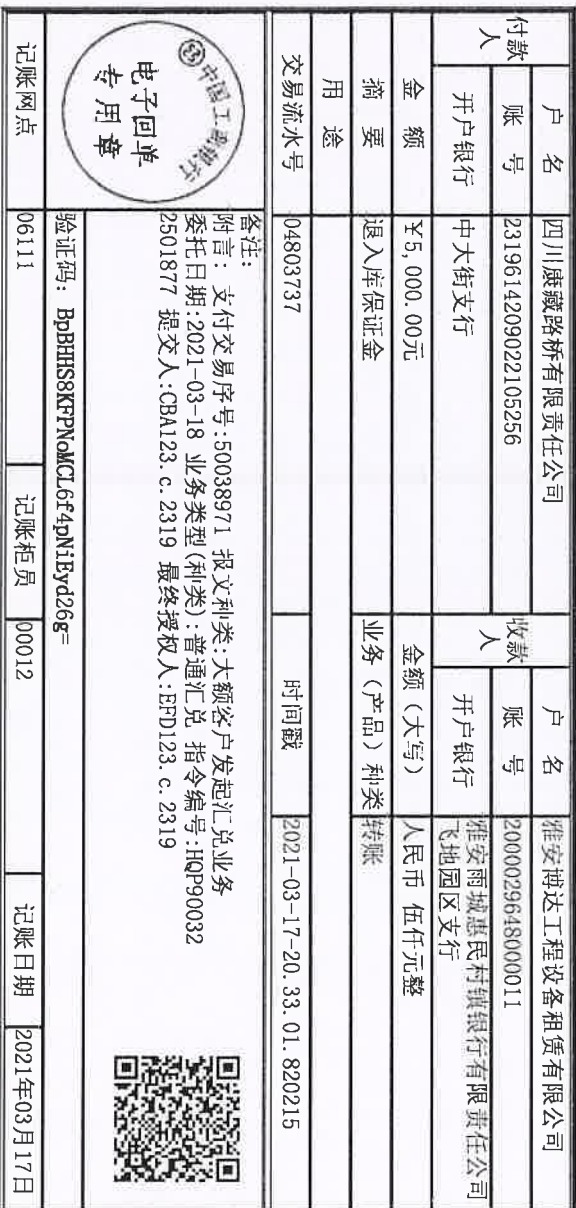 付款人 户名 四川康藏路桥有限责任公司 收款人 户名 雅安博达工程设备租赁有限公司
账号 2319614209022105256 账号 2000029648000011
开户银行 中大街支行 开户银行 雅安雨城惠民村镇银行有限责任公司
飞地园区支行
金额 ¥5,000.00元 金额(大写) 人民币 伍仟元整
摘要 退入库保证金 业务(产品)种类 转账
用途
交易流水号 04803737 时间戳 2021-03-17-20.33.01.820215
中国工商银行
电子回单
专用章
备注:
附言: 支付交易序号:50038971 报文种类:大额客户发起汇兑业务
委托日期:2021-03-18 业务类型(种类):普通汇兑 指令编号:HQP90032
2501877 提交人:CBA123.c.2319 最终授权人:EFD123.c.2319
验证码: BpBHHS8KFPNoMCL6f4pNiEyd26g=
记账网点 06111 记账柜员 00012 记账日期 2021年03月17日